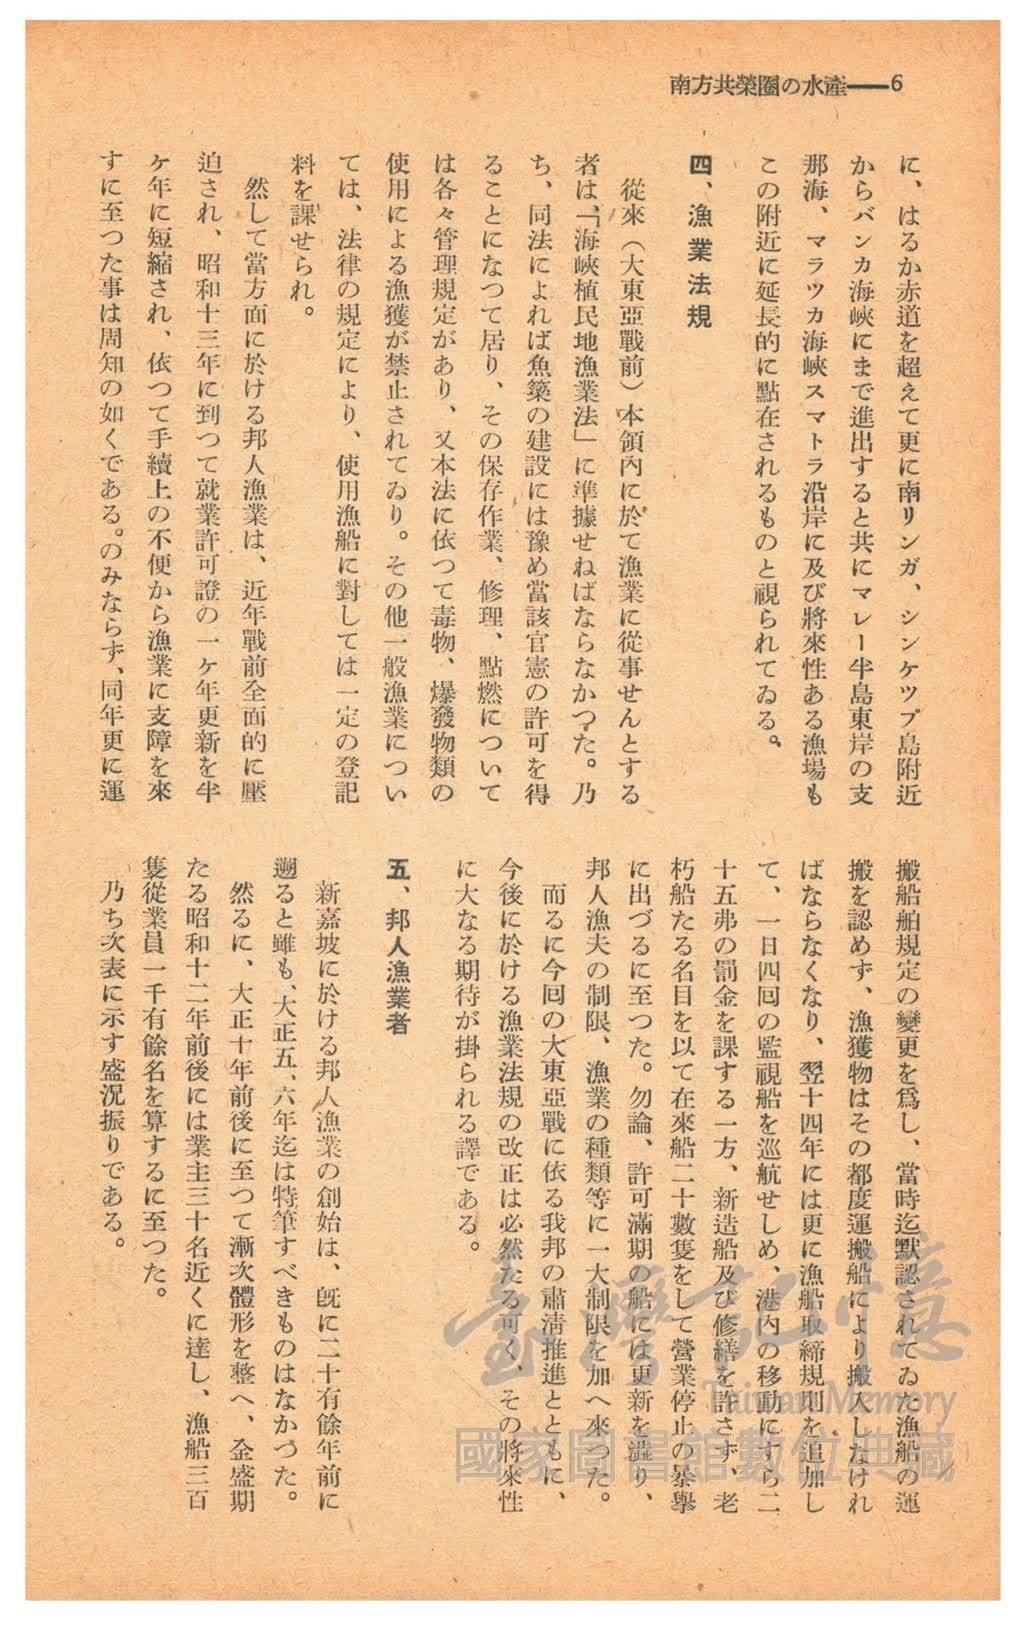 南方共榮圈の水產——6
に、はるか赤道を超えて更に南リンガ、シンケツプ島附近
からバンカ海峽にまで進出すると共にマレー半島東岸の支
那海、マラツカ海峽スマトラ沿岸に及び將來性ある漁場も
この附近に延長的に點在されるものと視られてゐる。
四、漁業法規
從來（大東亞戰前）本領內に於て漁業に從事せんとする
者は、「海峽植民地漁業法」に準據せねばならなかつた。乃
ち、同法によれば魚簗の建設には豫め當該官憲の許可を得
ることになつて居り、その保存作業、修理、點燃について
は各々管理規定があり、又本法に依つて毒物、爆發物類の
使用による漁獲が禁止されてゐり。その他一般漁業につい
ては、法律の規定により、使用漁船に對しては一定の登記
料を課せられ。
然して當方面に於ける邦人漁業は、近年戰前全面的に壓
迫され、昭和十三年に到つて就業許可證の一ケ年更新を半
ケ年に短縮され、依つて手續上の不便から漁業に支障を來
すに至つた事は周知の如くである。のみならず、同年更に運
搬船舶規定の變更を爲し、當時迄默認されてゐた漁船の運
搬を認めず、漁獲物はその都度運搬船により搬入しなけれ
ばならなくなり、翌十四年には更に漁船取締規則を追加し
て、一日四回の監視船を巡航せしめ、港內の移動にすら二
十五弗の罰金を課する一方、新造船及び修繕を許さず、老
朽船たる名目を以て在來船二十數隻をして營業停止の暴擧
に出づるに至つた。勿論、許可滿期の船には更新を澁り、
邦人漁夫の制限、漁業の種類等に一大制限を加へ來つた。
而るに今回の大東亞戰に依る我邦の肅淸推進とともに、
今後に於ける漁業法規の改正は必然たる可く、その將來性
に大なる期待が掛られる譯である。
五、邦人漁業者
新嘉坡に於ける邦人漁業の創始は、旣に二十有餘年前に
遡ると雖も、大正五、六年迄は特筆すべきものはなかつた。
然るに、大正十年前後に至つて漸次體形を整へ、全盛期
たる昭和十二年前後には業主三十名近くに達し、漁船三百
隻從業員一千有餘名を算するに至つた。
乃ち次表に示す盛況振りである。
臺灣記憶
Taiwan Memory
國家圖書館數位典藏